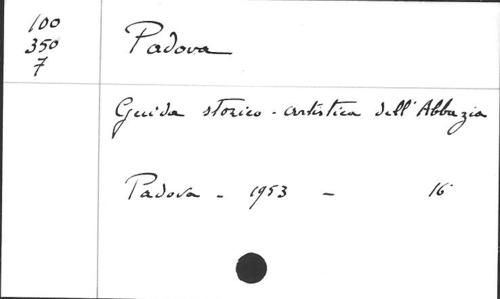 100
350
7
Padova
Guida storico-artistica dell'Abbazia
Padova - 1953 - 16°